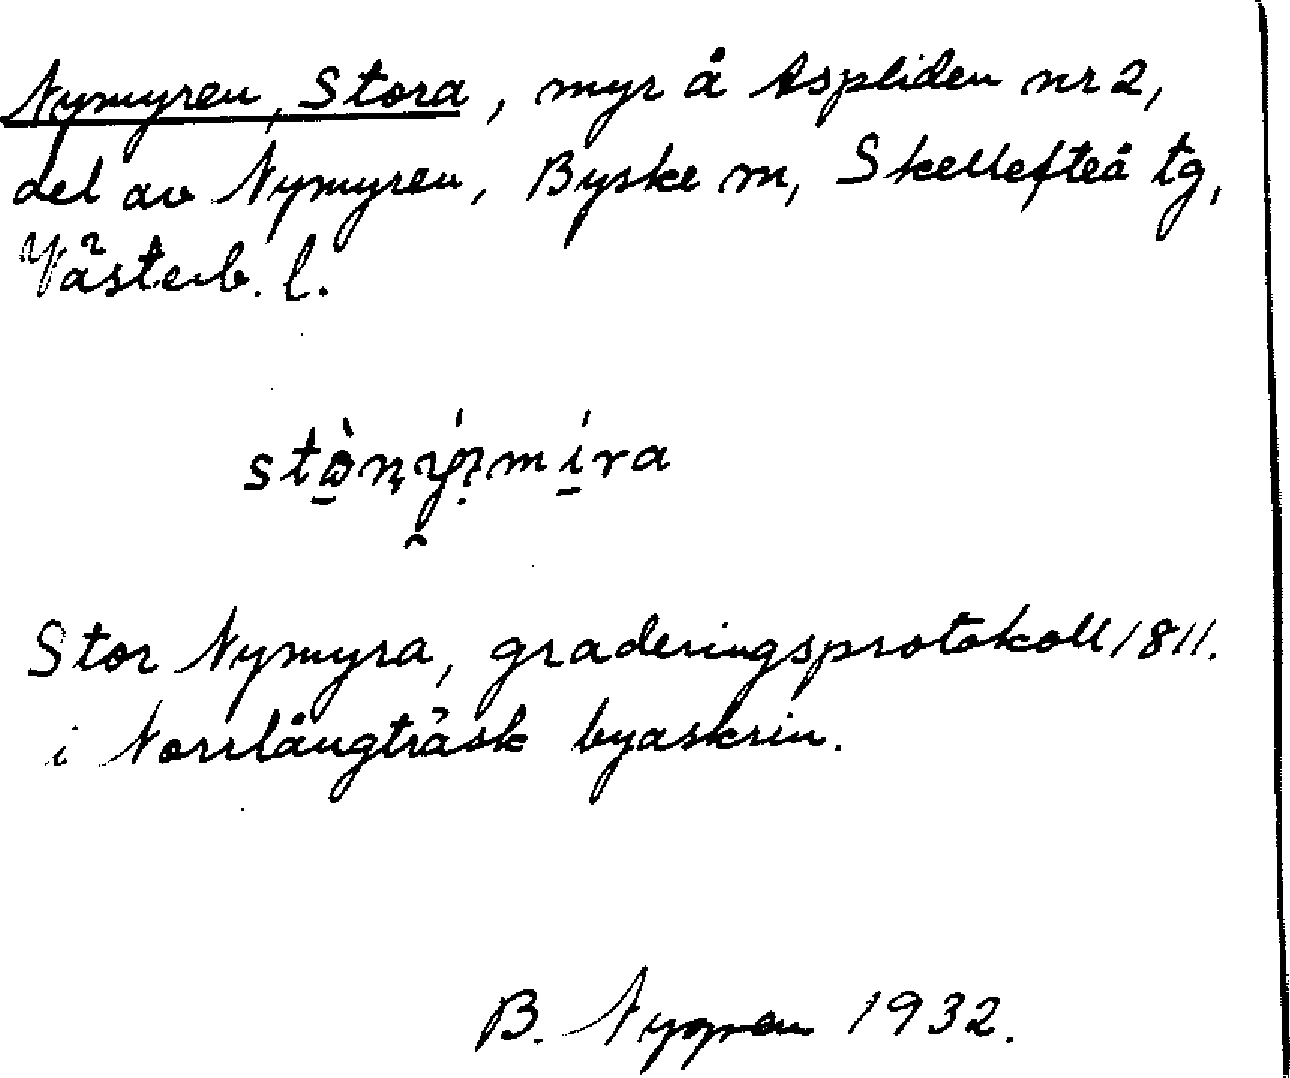 Nymyren, Stora, myr å Aspliden nr 2,
del av Nymyren, Byske sn, Skellefteå tg,
Västerb. l.
Stor Nymyra, graderingsprotokoll 1811.
i Norrlångträsk byaskrin.
B. Nygren 1932.